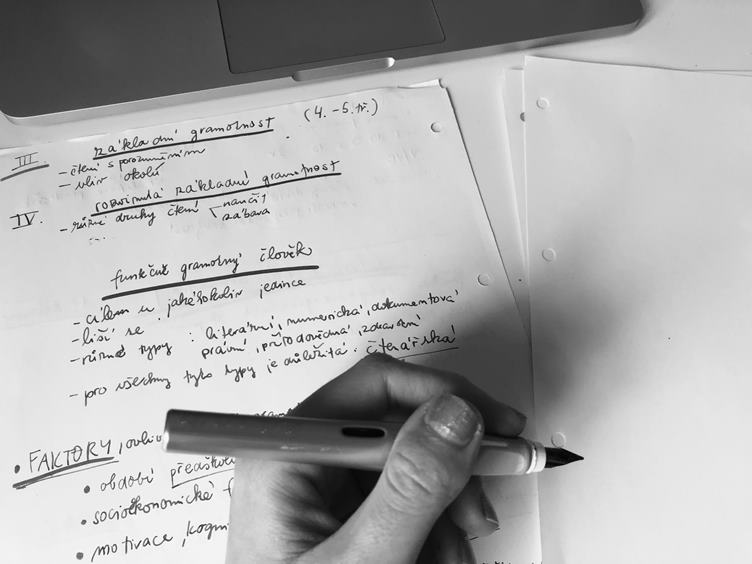 III. základní gramotnost (4. - 5. tř.)
- čtení s porozuměním
- vliv okolí
IV. rozvinutá základní gramotnost
- různé druhy čtení naučit
zábava
...
funkčně gramotný člověk
- cílem u jakéhokoliv jedince
- liší se
- různé typy : literární, numerická, dokumentová
právní, přírodovědná, zdravotní
- pro všechny tyto typy je důležitá čtenářská
• FAKTORY, ovliv
• období předškol
• socioekonomické f
• motivace, kogni